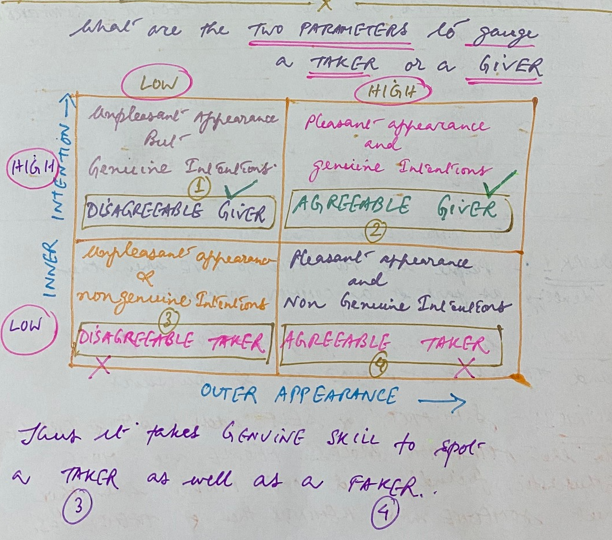 What are the TWO PARAMETERS to gauge
a TAKER or a GIVER
LOW
HIGH
Unpleasant Appearance
But
Genuine Intentions.
1
DISAGREEABLE GIVER
Pleasant appearance
and
genuine Intentions
AGREEABLE GIVER
2
HIGH
INNER INTENTION
LOW
Unpleasant appearance
&
nongenuine Intentions
3
DISAGREEABLE TAKER
Pleasant appearance
and
Non Genuine Intentions
AGREEABLE TAKER
4
OUTER APPEARANCE
Thus it takes GENUINE SKILL to spot
a TAKER as well as a FAKER..
3
4